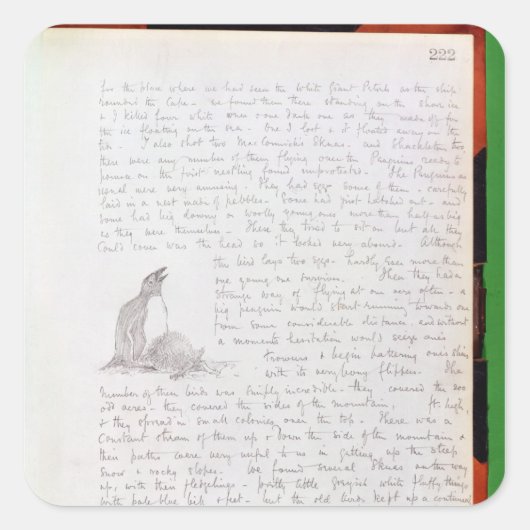 222
for the place where we had seen the White Giant Petrels as the ship
rounded the Cape - we found them there standing on the shore ice
& I killed four white ones & one dark one as they made off for
the ice floating on the sea. One I lost & it floated away on the
tide. I also shot two MacCormick's Skuas. and Shackleton two,
there were any number of them flying over the Penguins ready to
pounce on the first nestling found unprotected. The Penguins as
usual were very amusing. They had eggs some of them - carefully
laid in a nest made of pebbles. Some had just hatched out - and
some had big downy or woolly young ones more than half as big
as they were themselves - These they tried to sit on but all they
could cover was the head so it looked very absurd. Although
the bird lays two eggs - hardly ever more than
one young one survives. Then they had a
strange way of flying at one very often - a
big penguin would start running towards one
from some considerable distance, and without
a moments hesitation would seize one's
trousers & begin battering one's shins
with its very bony flippers. The
number of these birds was simply incredible - they covered the 200
odd acres - they covered the sides of the mountain, ft. high,
& they spread in small colonies over the top. There was a
constant stream of them up & down the side of the mountain &
their paths were very useful to us in getting up the steep
snow & rocky slopes. We found several Skuas on the way
up, with their fledgelings - pretty little greyish white fluffy things
with pale blue bill & feet - but the old birds kept up a continual